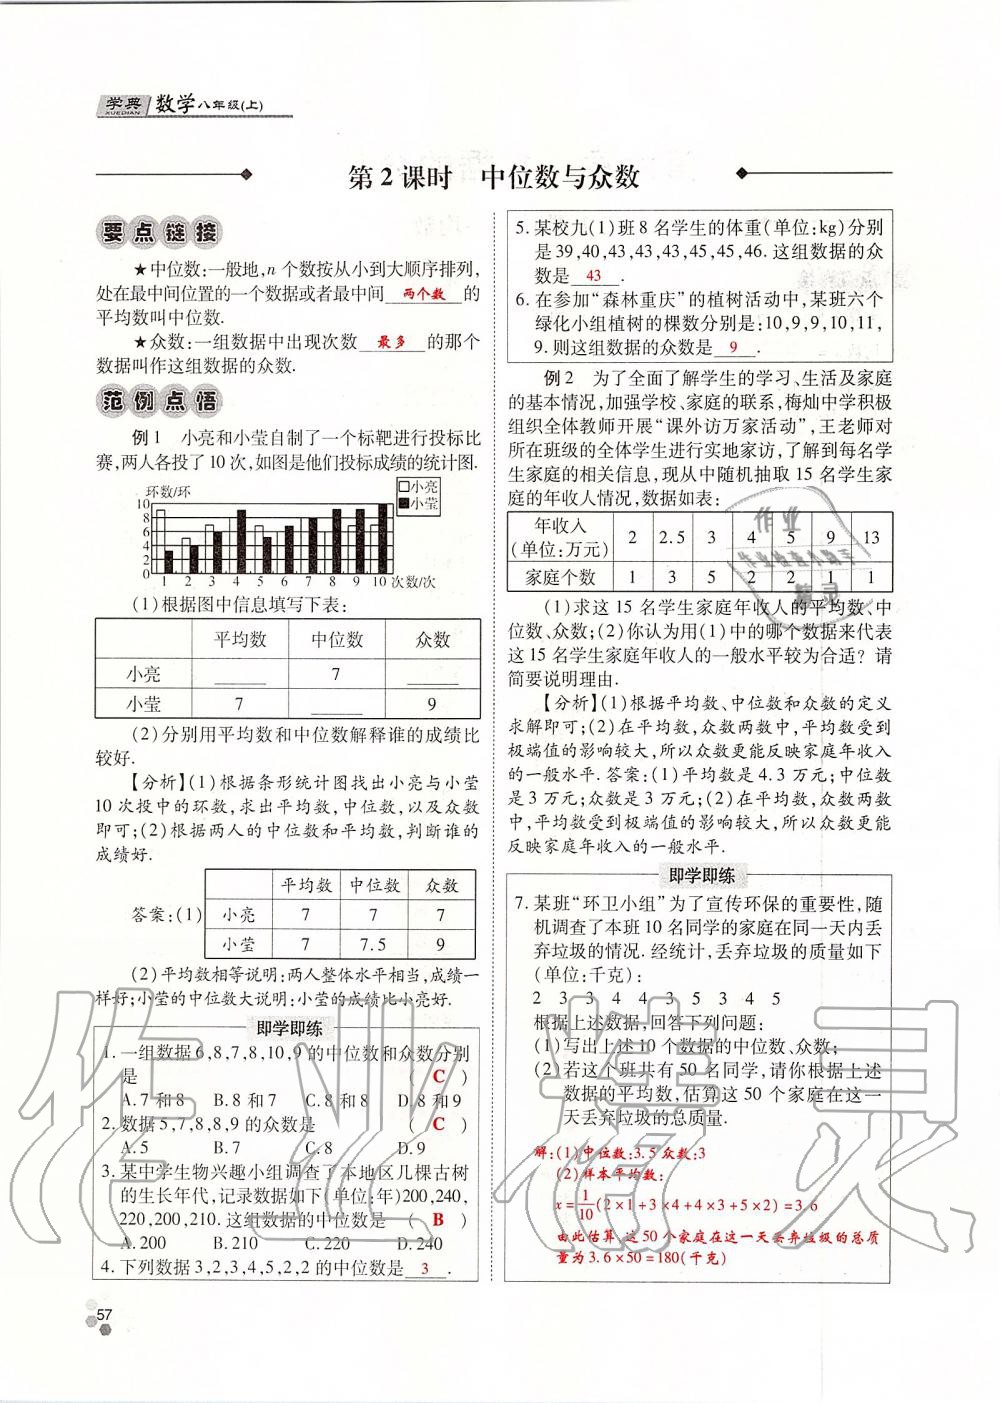 学典 数学八年级(上)
XUEDIAN
第2课时 中位数与众数
要点链接
★中位数:一般地,n个数按从小到大顺序排列,
处在最中间位置的一个数据或者最中间 两个数 的
平均数叫中位数.
★众数:一组数据中出现次数 最多 的那个
数据叫作这组数据的众数.
范例点悟
例1 小亮和小莹自制了一个标靶进行投标比
赛,两人各投了10次,如图是他们投标成绩的统计图.
环数/环
□小亮
■小莹
10
8
6
4
2
0
1 2 3 4 5 6 7 8 9 10 次数/次
(1)根据图中信息填写下表:
平均数 中位数 众数
小亮 ____ 7 ____
小莹 7 ____ 9
(2)分别用平均数和中位数解释谁的成绩比
较好.
【分析】(1)根据条形统计图找出小亮与小莹
10次投中的环数,求出平均数,中位数,以及众数
即可;(2)根据两人的中位数和平均数,判断谁的
成绩好.
答案:(1)
平均数 中位数 众数
小亮 7 7 7
小莹 7 7.5 9
(2)平均数相等说明:两人整体水平相当,成绩一
样好;小莹的中位数大说明:小莹的成绩比小亮好.
即学即练
1.一组数据6,8,7,8,10,9的中位数和众数分别
是 ( C )
A.7和8 B.8和7 C.8和8 D.8和9
2.数据5,7,8,8,9的众数是 ( C )
A.5 B.7 C.8 D.9
3.某中学生物兴趣小组调查了本地区几棵古树
的生长年代,记录数据如下(单位:年)200,240,
220,200,210.这组数据的中位数是 ( B )
A.200 B.210 C.220 D.240
4.下列数据3,2,3,4,5,2,2的中位数是 3 .
5.某校九(1)班8名学生的体重(单位:kg)分别
是39,40,43,43,43,45,45,46.这组数据的众
数是 43 .
6.在参加“森林重庆”的植树活动中,某班六个
绿化小组植树的棵数分别是:10,9,9,10,11,
9.则这组数据的众数是 9 .
例2 为了全面了解学生的学习、生活及家庭
的基本情况,加强学校、家庭的联系,梅灿中学积极
组织全体教师开展“课外访万家活动”,王老师对
所在班级的全体学生进行实地家访,了解到每名学
生家庭的相关信息,现从中随机抽取15名学生家
庭的年收入情况,数据如表:
年收入
(单位:万元) 2 2.5 3 4 5 9 13
家庭个数 1 3 5 2 2 1 1
(1)求这15名学生家庭年收入的平均数、中
位数、众数;(2)你认为用(1)中的哪个数据来代表
这15名学生家庭年收入的一般水平较为合适?请
简要说明理由.
【分析】(1)根据平均数、中位数和众数的定义
求解即可;(2)在平均数,众数两数中,平均数受到
极端值的影响较大,所以众数更能反映家庭年收入
的一般水平.答案:(1)平均数是4.3万元;中位数
是3万元;众数是3万元;(2)在平均数,众数两数
中,平均数受到极端值的影响较大,所以众数更能
反映家庭年收入的一般水平.
即学即练
7.某班“环卫小组”为了宣传环保的重要性,随
机调查了本班10名同学的家庭在同一天内丢
弃垃圾的情况.经统计,丢弃垃圾的质量如下
(单位:千克):
2 3 3 4 4 3 5 3 4 5
根据上述数据,回答下列问题:
(1)写出上述10个数据的中位数、众数;
(2)若这个班共有50名同学,请你根据上述
数据的平均数,估算这50个家庭在这一
天丢弃垃圾的总质量.
解:(1)中位数:3.5 众数:3
(2)样本平均数:
x=1/10(2×1+3×4+4×3+5×2)=3.6
由此估算 这50个家庭在这一天丢弃垃圾的总质
量为3.6×50=180(千克)
57
作业精灵